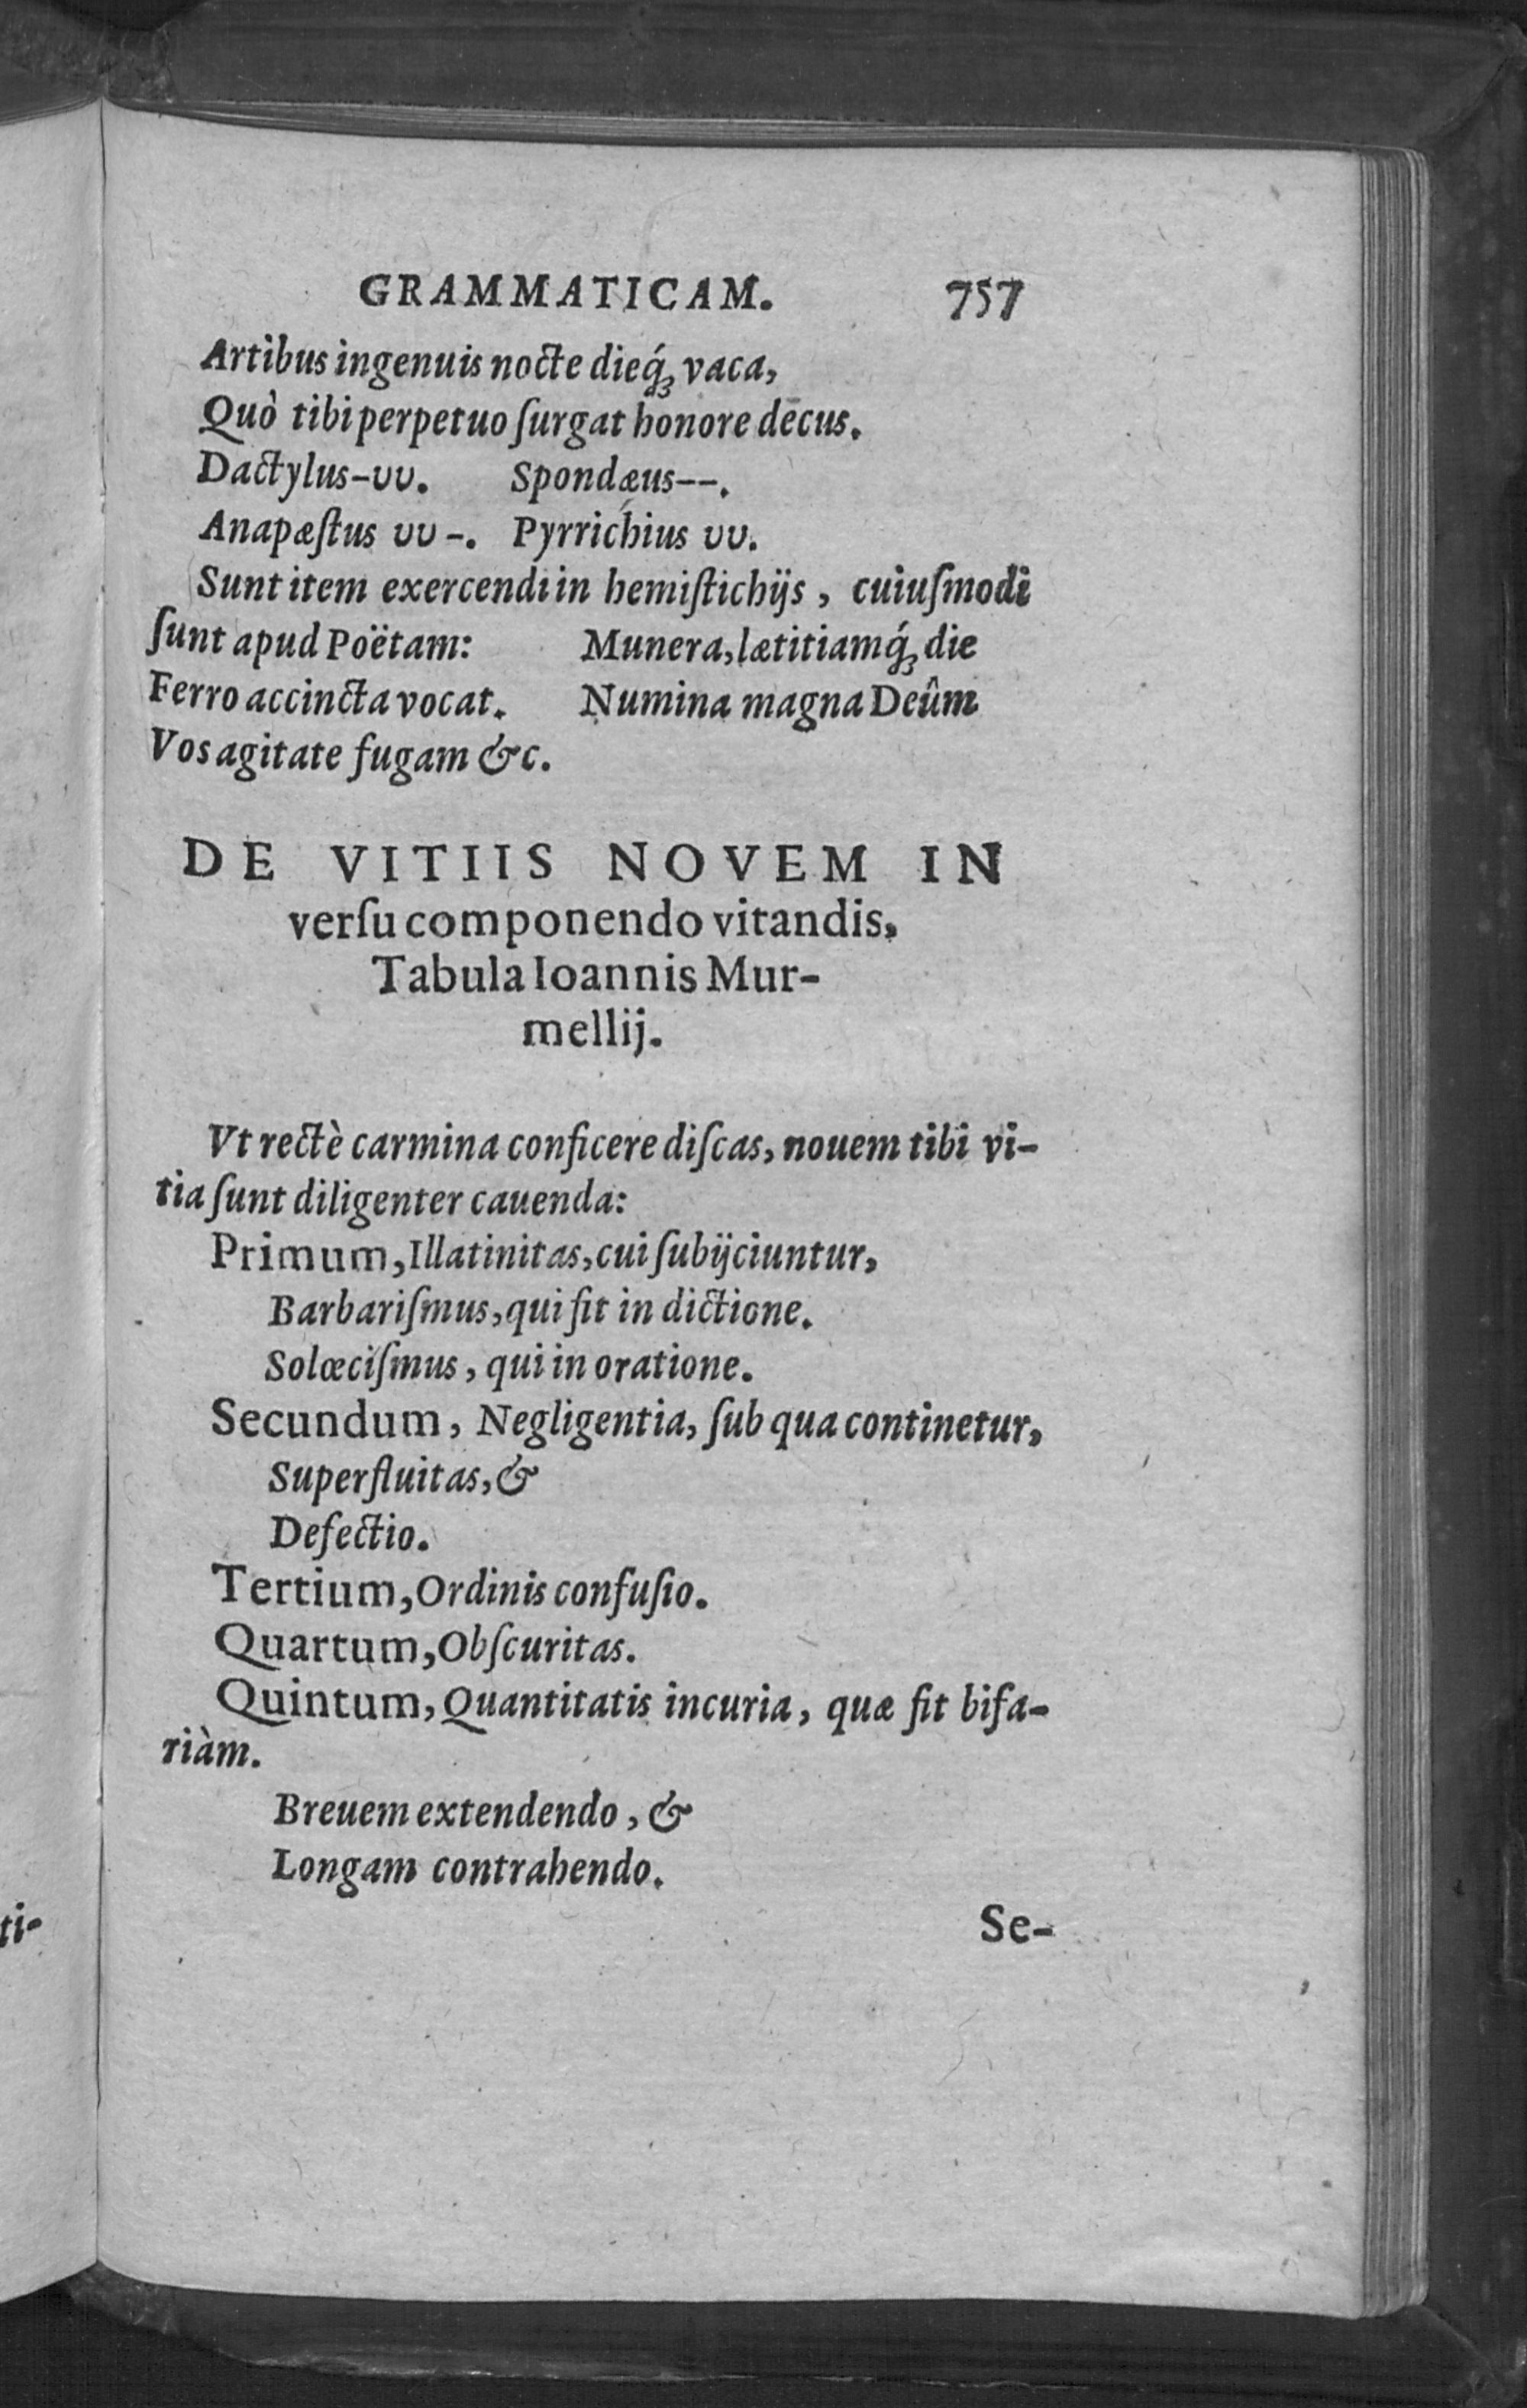 GRAMMATICAM. 757
Artibus ingenuis nocte dieq́ꝫ vaca,
Quò tibi perpetuo ſurgat honore decus.
Dactylus-υυ. Spondæus--.
Anapæſtus υυ-. Pyrrichius υυ.
Sunt item exercendi in hemiſtichijs, cuiuſmodi
ſunt apud Poëtam: Munera, lætitiamq́ꝫ die
Ferro accincta vocat. Numina magna Deûm
Vos agitate fugam &c.
DE VITIIS NOVEM IN
verſu componendo vitandis,
Tabula Ioannis Mur-
mellij.
Vt rectè carmina conficere diſcas, nouem tibi vi-
tia ſunt diligenter cauenda:
Primum, Illatinitas, cui ſubijciuntur,
Barbariſmus, qui fit in dictione.
Solœciſmus, qui in oratione.
Secundum, Negligentia, ſub qua continetur,
Superfluitas, &
Defectio.
Tertium, Ordinis confuſio.
Quartum, Obſcuritas.
Quintum, Quantitatis incuria, quæ fit bifa-
riàm.
Breuem extendendo, &
Longam contrahendo.
ti-
Se-